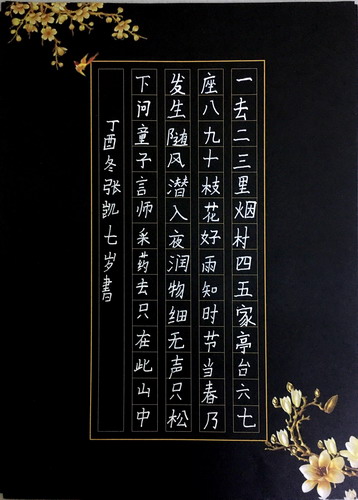 一去二三里烟村四五家亭台六七
座八九十枝花好雨知时节当春乃
发生随风潜入夜润物细无声只松
下问童子言师采药去只在此山中
丁酉冬张凯七岁書